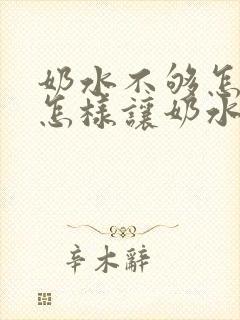 奶水不够怎
怎樣讓奶水
辛木辭